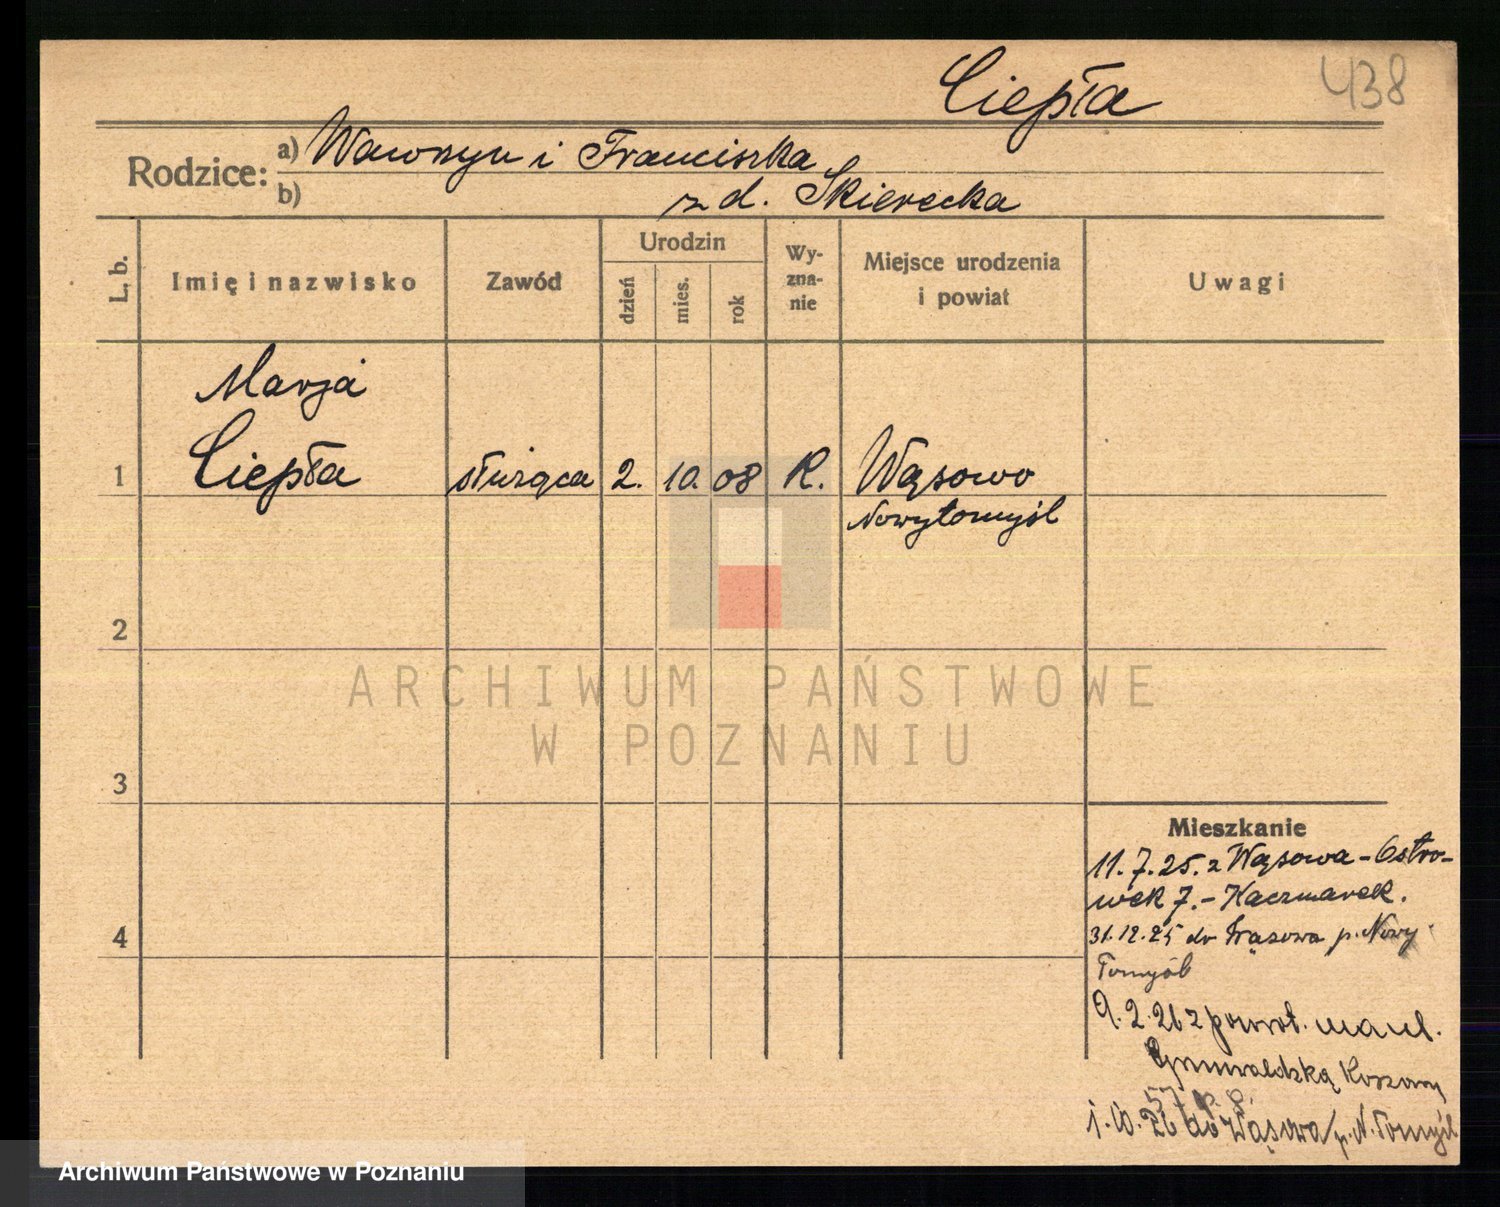 Ciepła
438
Rodzice:
a) Wawrzyn i Franciszka
b) z d. Skierecka
L. b.
Imię i nazwisko
Zawód
Urodzin
dzień
mies.
rok
Wy-
zna-
nie
Miejsce urodzenia
i powiat
Uwagi
Marja
1 Ciepła służąca 2. 10. 08 R. Wąsowo
Nowytomyśl
2
3
4
Mieszkanie
11.7.25. z Wąsowa - Ostro-
wek 7. - Kaczmarek.
31.12.25 do Wąsowa p. Nowy
Tomyśl
9.2.26 z powrot. na ul.
Grunwaldzką Koszary
57 p. p.
1.10.26 do Wąsowa p. N. Tomyśl
ARCHIWUM PAŃSTWOWE
W POZNANIU
Archiwum Państwowe w Poznaniu